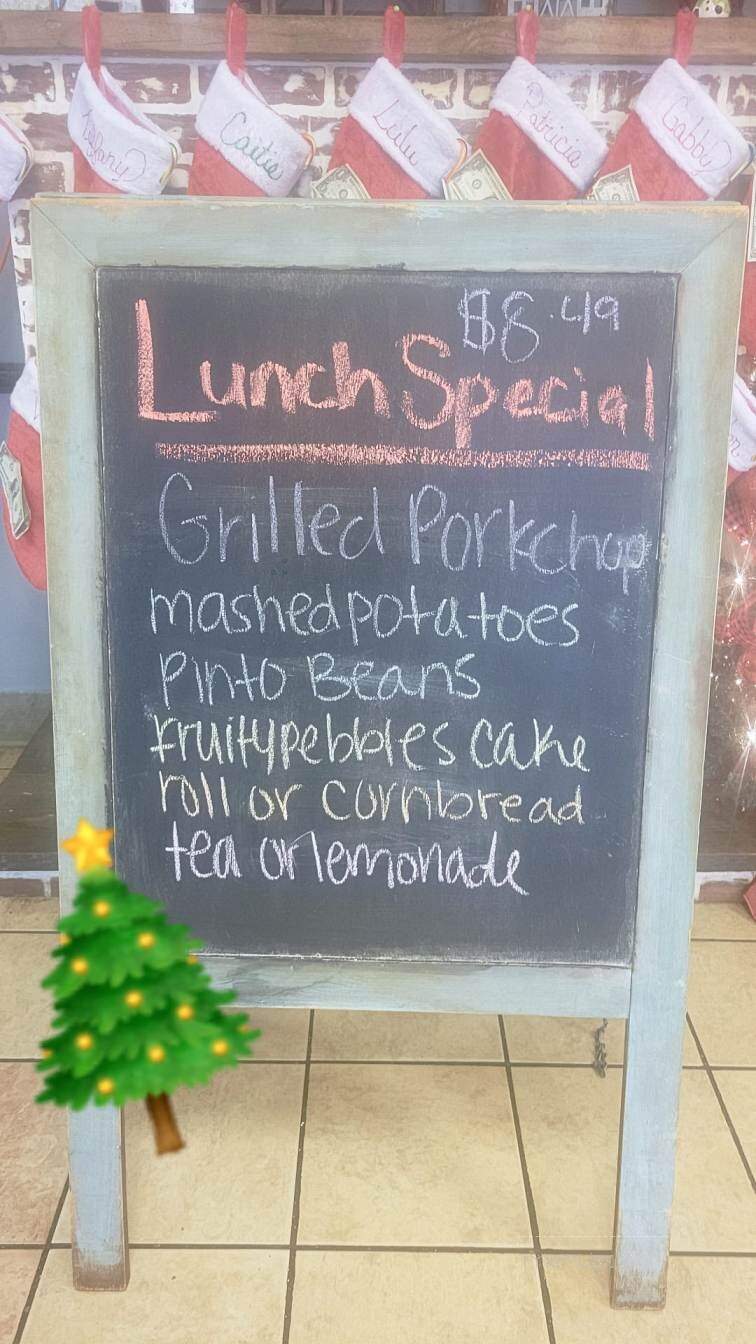 Caitie
Lulu
Patricia
Gabby
$8.49
Lunch Special
Grilled Porkchop
mashed potatoes
Pinto Beans
fruitypebbles cake
roll or cornbread
tea or lemonade